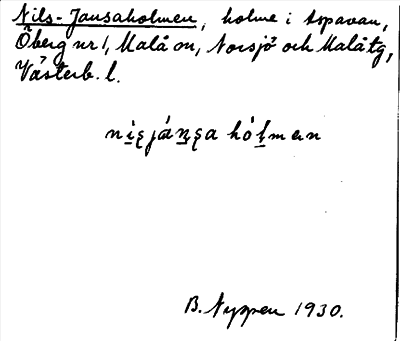 Nils-Jansaholmen, holme i sspavan,
Öberg nr 1, Malå sn, Norsjö och Malå tg,
Västerb. l.
nisjánsa hólmen
B. Nyppen 1930.